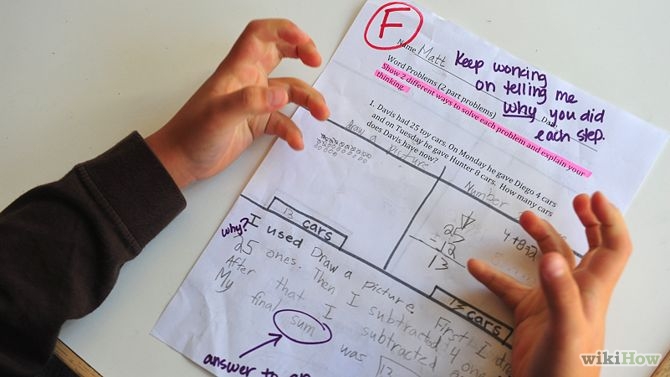 F
Name Matt
Keep working
on telling me
why you did
each step.
Word Problems (2 part problems)
Show 2 different ways to solve each problem and explain your
thinking.
1. Davis had 25 toy cars. On Monday he gave Diego 4 cars
and on Tuesday he gave Hunter 8 cars. How many cars
does Davis have now?
Draw a picture
Number
4+8=12
25
-12
13
13 cars
13 cars
why?
I used Draw a picture. First I
25 ones. Then I subtracted 4
After that I subtracted
My final sum was
answer to
wikiHow